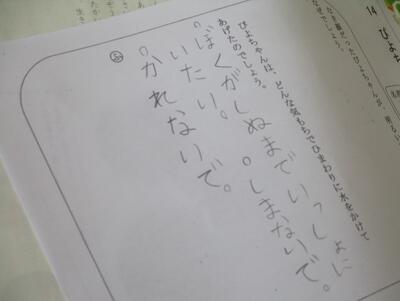 14 ひよ
ひよちゃんは、どんな気もちでひまわりに水をかけて
あげたのでしょう。
「ぼくがしぬまでいっしょに
いたい。しまないで。
「かれないで。